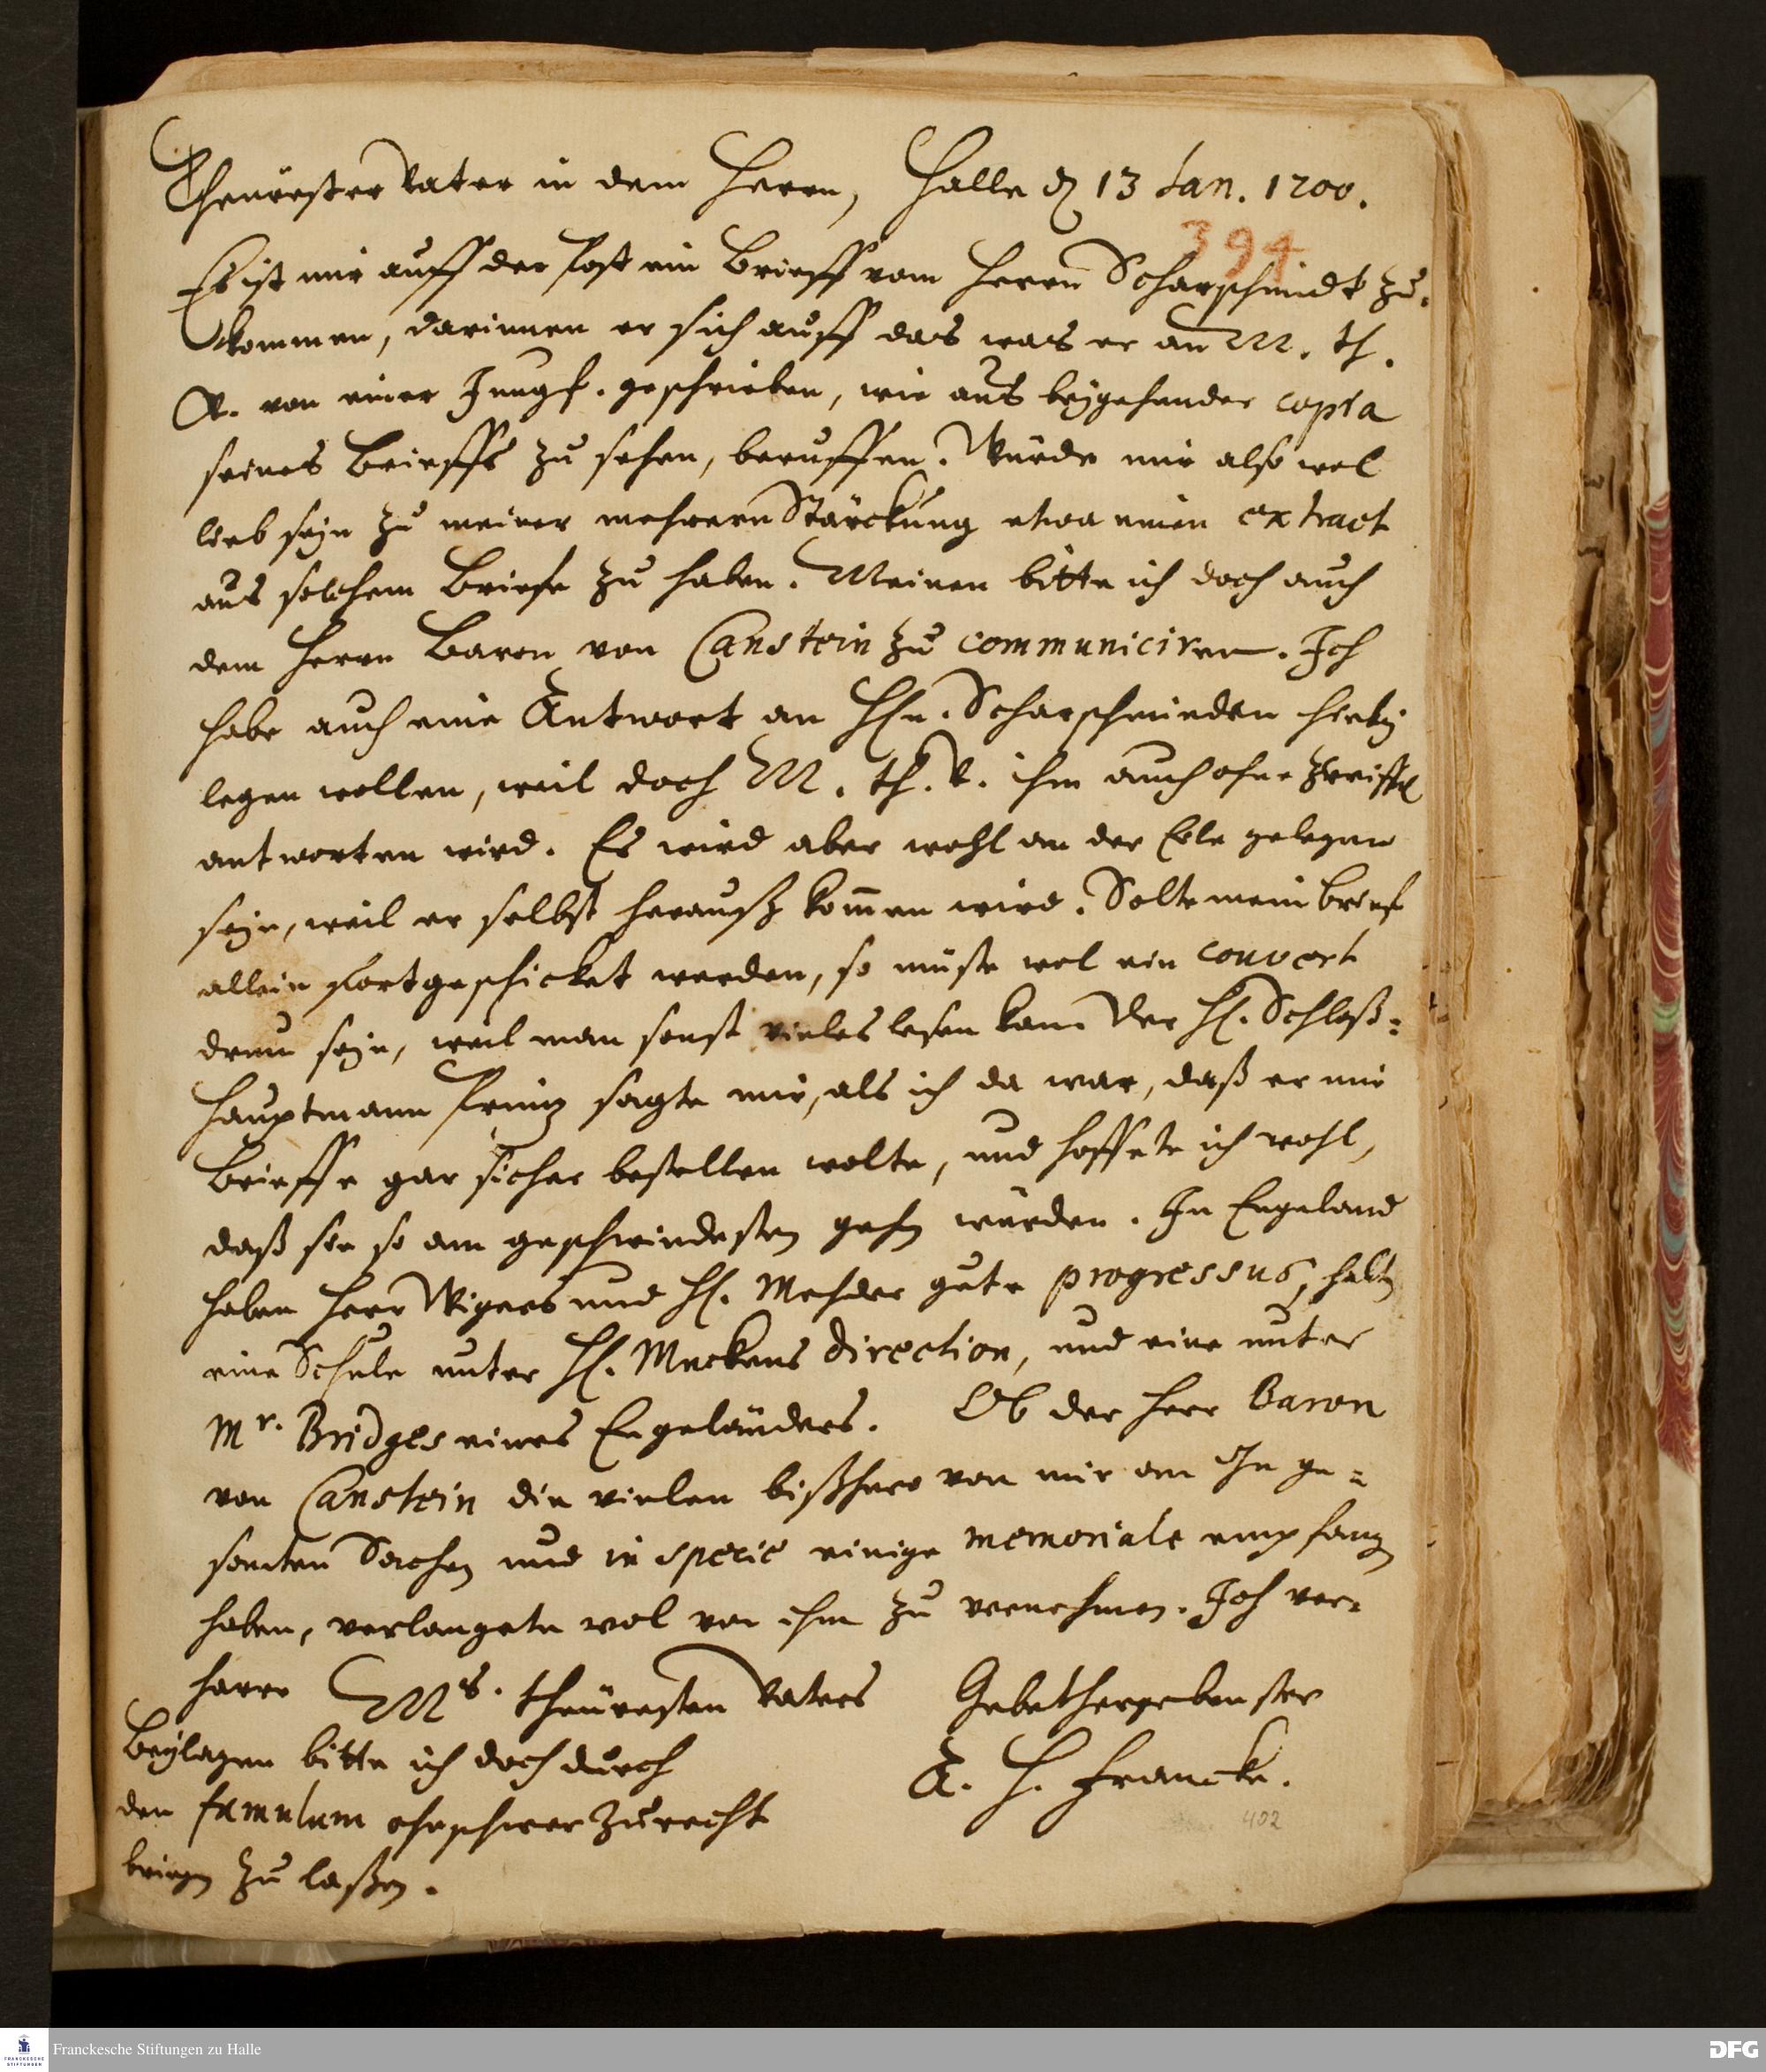 Theürester Vater in dem Herrn, Halle d. 13 Jan. 1700.
394
Es ist mir auff der Post ein Brieff vom Herrn Scharschmidt zu-
kommen, darinnen er sich auff das was er an M. th.
V. von einer Jungf. geschrieben, wie aus beygehender copia
seines Brieffs zu sehen, beruffen. Würde mir also wol
lieb seyn zu meiner mehrern Stärckung etwa einen extract
aus solchem Briefe zu haben. Meinen bitte ich doch auch
dem Herrn Baron von Canstein zu communiciren. Ich
habe auch eine Antwort an Hn. Scharschmieden hiebey
legen wollen, weil doch M. th. V. ihm auch ohne Zweiffel
antworten wird. Es wird aber wohl an der Eile gelegen
seyn, weil er selbst herauß kom̄en wird. Solte mein Brief
allein fortgeschicket werden, so müste wol ein couvert
drum seyn, weil man sonst vieles lesen kan. Der H. Schloß-
hauptmann Printz sagte mir, als ich da war, daß er mir
Brieffe gar sicher bestellen wolte, und hoffete ich wohl,
daß sie so am geschwindesten gehn würden. In Engeland
haben Herr Wigers und H. Mehder gute progressus, halten
eine Schule unter H. Meckens direction, und eine unter
Mr. Bridges eines Engeländers. Ob der Herr Baron
von Canstein die vielen bißhero von mir an Ihn ge-
sandten Sachen und in specie einige memoriale empfangen
haben, verlangete wol von ihm zu vernehmen. Ich ver-
harre Ms. theüresten Vaters Gebethergebenster
A. H. Francke.
Beylagen bitte ich doch durch
den famulum ohnschwer zurecht
bringen zu laßen.
402
Franckesche Stiftungen zu Halle
FRANCKESCHE STIFTUNGEN
DFG